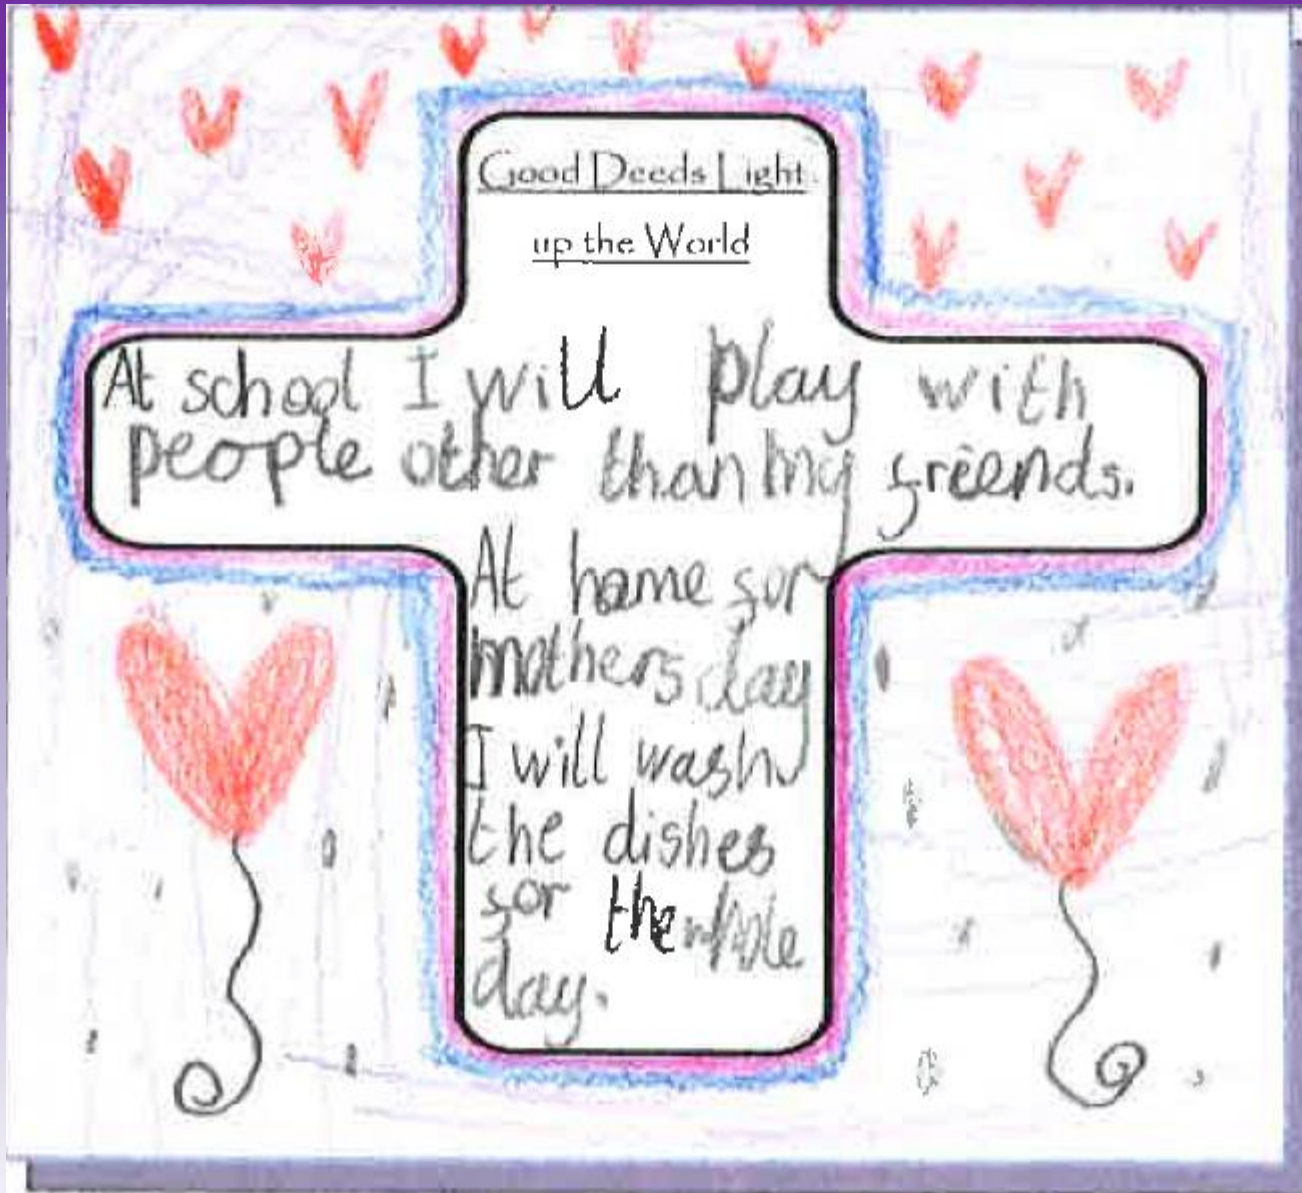 Good Deeds Light
up the World
At school I will play with
people other than my friends.
At home for
mothers day
I will wash
the dishes
for the whole
day.